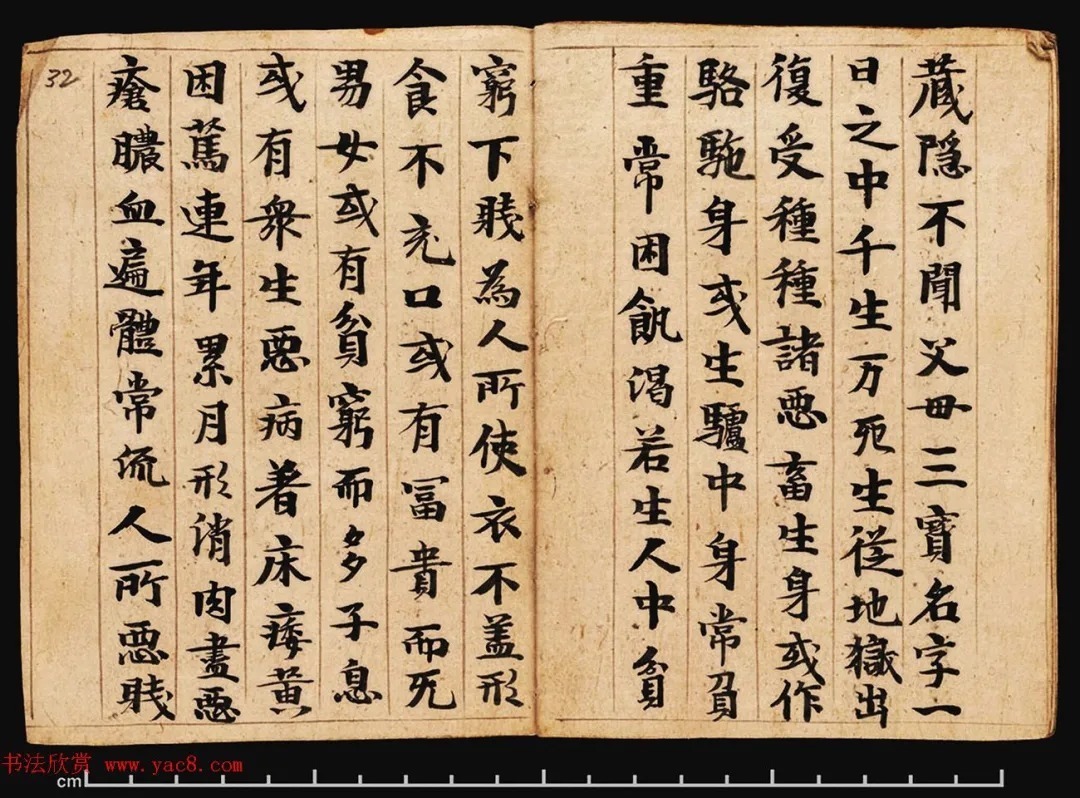 蔵隠不聞父毋三寶名字一
日之中千生万死生従地獄出
復受種種諸悪畜生身或作
駱駞身或生驢中身常負
重常困飢渇若生人中貧
窮下賎為人所使衣不盖形
食不充口或有冨貴而无
男女或有貧窮而多子息
或有衆生悪病著床痿黄
困篤連年累月形消肉盡悪
瘡膿血遍體常流人所悪賎
32
书法欣赏 www.yac8.com
cm